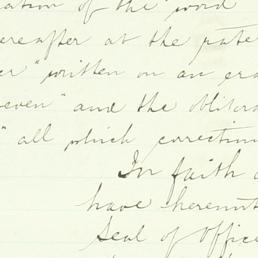 ation of the word
ereafter at the rate
er" written on an era
even" and the oblitera
" all which correction
In faith
have hereunt
Seal of Office